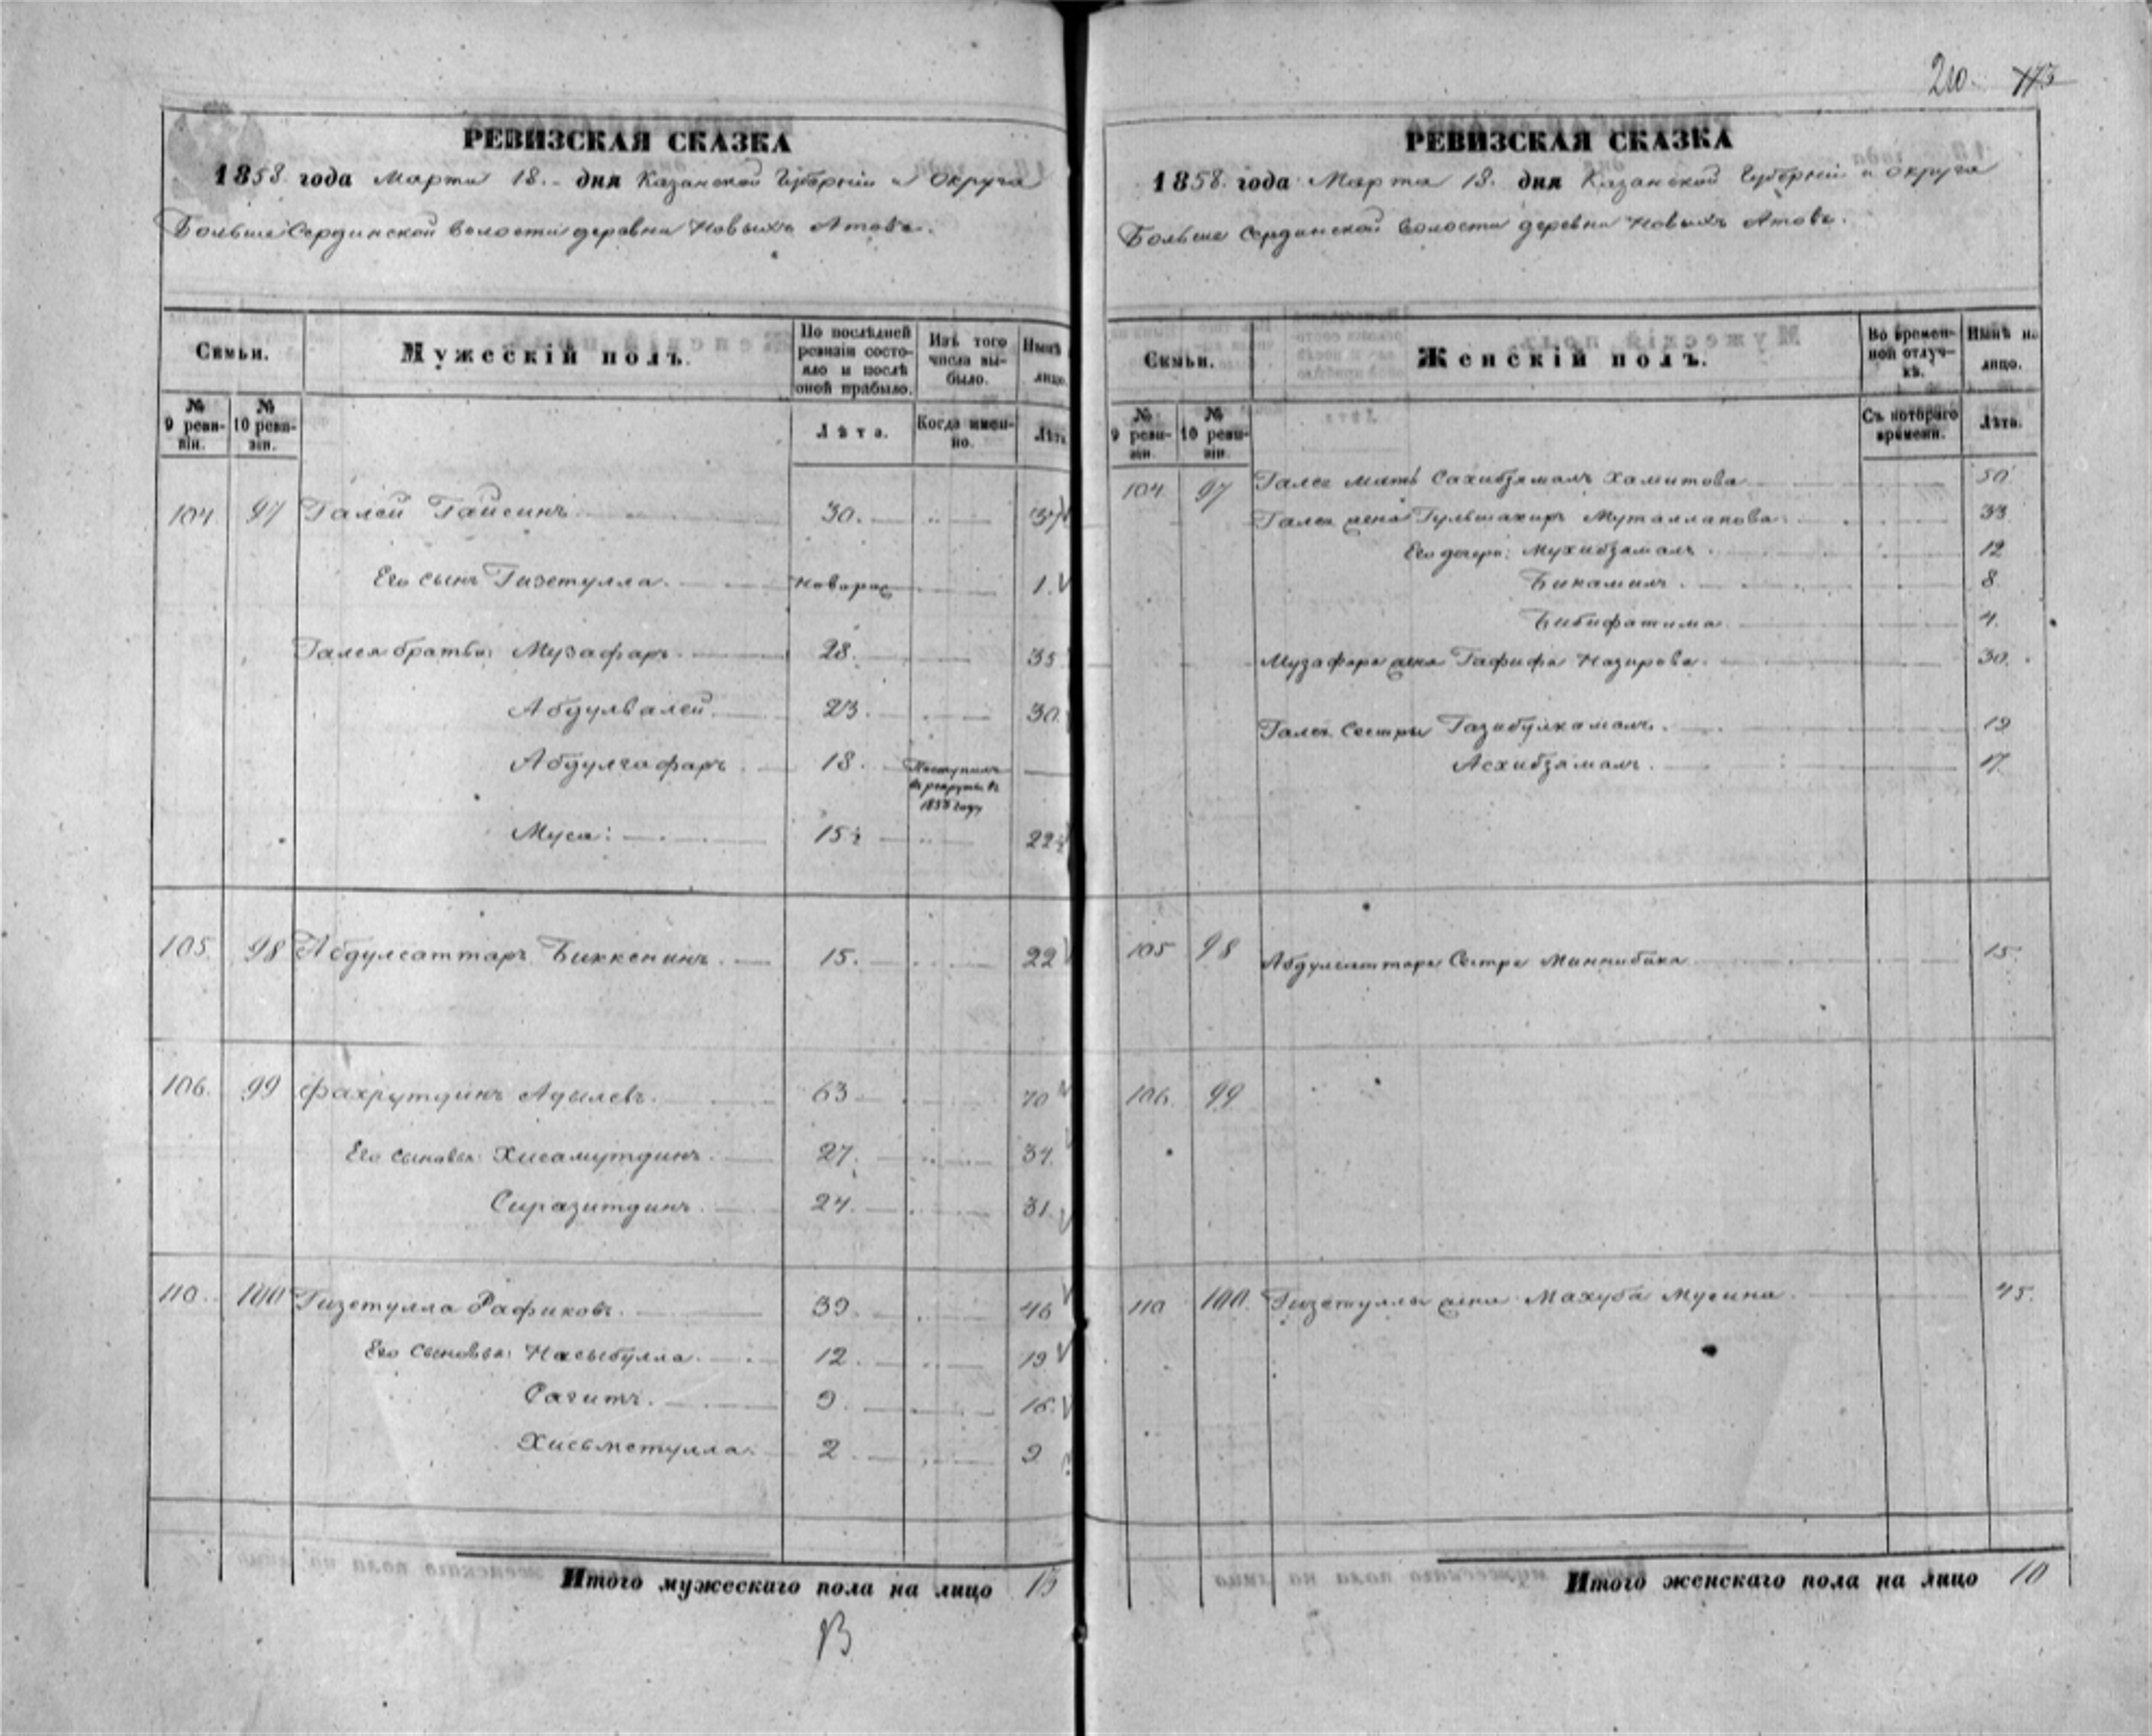 210. 175
РЕВИЗСКАЯ СКАЗКА
1858 года Марта 18. дня Казанской Губерніи и Округа
Больше Сердинской волости деревни Новыхъ Атовъ.
Семьи.
Мужескій полъ.
По послѣдней ревизіи состояло и послѣ оной прибыло.
Изъ того числа выбыло.
Нынѣ лицо.
№ 9 ревизіи.
№ 10 ревизіи.
Лѣта.
Когда именно.
Лѣта
104 97 Галей Гайсинъ 30. 37
Его сынъ Гизетулла. новорож 1.
Галея братья: Музафаръ. 28. 35
Абдулвалей. 23. 30.
Абдулгафаръ 18. Поступилъ въ рекруты въ 1855 году
Муса: 15½ 22½
105. 98 Абдулсаттаръ Биккенинъ. 15. 22
106. 99 Фахрутдинъ Адылевъ. 63 70
Его сыновья: Хисамутдинъ. 27. 34.
Сиразитдинъ. 24. 31.
110. 100 Гизетулла Рафиковъ. 39. 46
Его сыновья: Насыбулла. 12. 19
Сагитъ. 9. 16.
Хисьметулла. 2. 9
Итого мужескаго пола на лицо 13
13
РЕВИЗСКАЯ СКАЗКА
1858. года Марта 18. дня Казанской Губерніи и округа
Больше Сердинской волости деревни Новыхъ Атовъ.
Семьи.
Женскій полъ.
Во временной отлучкѣ.
Нынѣ на лицо.
№ 9 ревизіи.
№ 10 ревизіи.
Съ котораго времени.
Лѣта.
104 97 Галея мать Сахибзямалъ Хамитова 50
Галея жена Гульшахиръ Муталлапова. 33
Его дочери: Мухибзямалъ. 12
Бикамилъ. 8.
Бибифатима 4.
Музафара жена Гафифа Назирова. 30.
Галея сестры Газибулкамалъ. 19
Асхибзямалъ. 17.
105 98 Абдулсаттара Сестра Миннибика 15.
106. 99
110 100. Гизетуллы жена Махуба Мусина. 45.
Итого женскаго пола на лицо 10